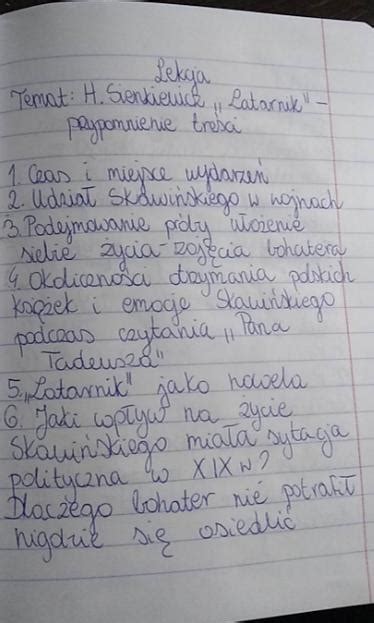 Lekcja
Temat: H. Sienkiewicz „Latarnik" –
przypomnienie treści
1. Czas i miejsce wydarzeń
2. Udział Skawińskiego w wojnach
3. Podejmowanie próby ułożenie
siebie życia-zajęcia bohatera
4. Okoliczności otrzymania polskich
książek i emocje Skawińskiego
podczas czytania „Pana
Tadeusza"
5. „Latarnik" jako nowela
6. Jaki wpływ na życie
Skawińskiego miała sytacja
polityczna w XIX w?
Dlaczego bohater nie potrafił
nigdzie się osiedlić